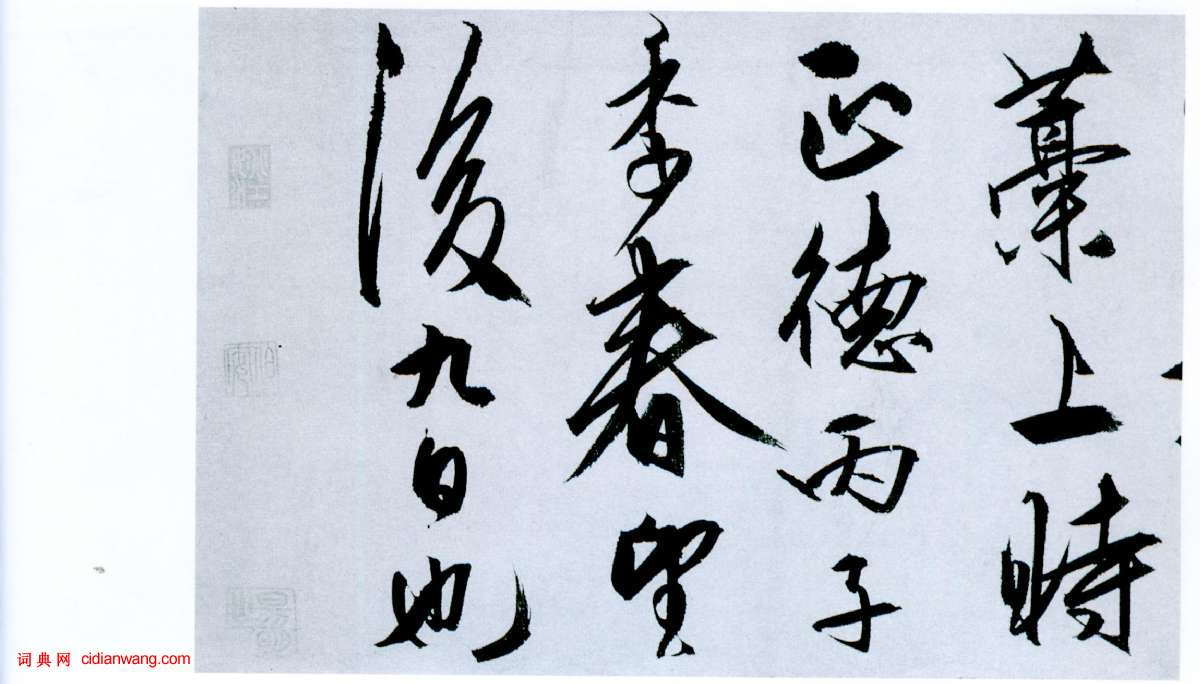 藁上時
正德丙子
季春望
後九日也
词典网 cidianwang.com